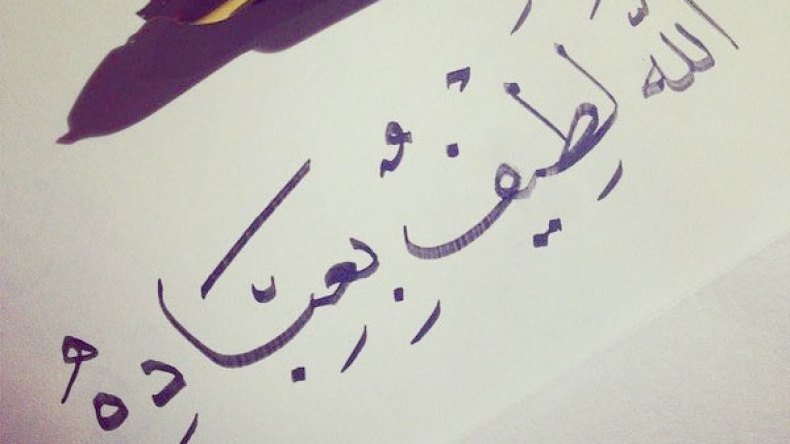 اللَّه لَطِيفٌ بِعِبَادِهُ